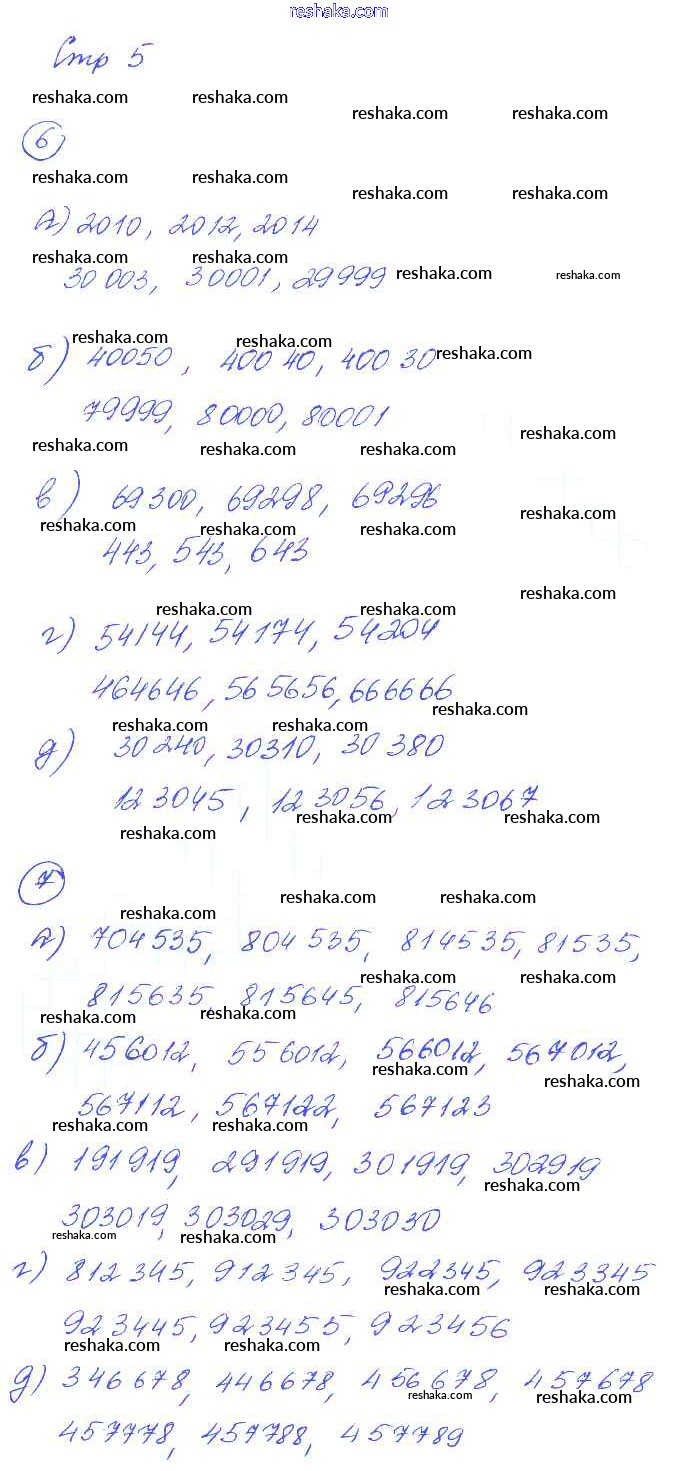 reshaka.com
Стр 5
reshaka.com reshaka.com reshaka.com reshaka.com
6
reshaka.com reshaka.com reshaka.com reshaka.com
а) 2010, 2012, 2014
reshaka.com reshaka.com
30 003, 30001, 29999 reshaka.com reshaka.com
reshaka.com reshaka.com
б) 40050, 400 40, 400 30 reshaka.com
79999, 80000, 80001
reshaka.com reshaka.com reshaka.com reshaka.com
в) 69300, 69298, 69296
reshaka.com reshaka.com reshaka.com reshaka.com
443, 543, 643
reshaka.com
reshaka.com reshaka.com
г) 54144, 54174, 54204
464646, 565656, 666666
reshaka.com
reshaka.com reshaka.com
д) 30240, 30310, 30 380
123045, 123056, 123067
reshaka.com reshaka.com reshaka.com
7
reshaka.com reshaka.com
reshaka.com
а) 704535, 804 535, 814535, 81535,
reshaka.com reshaka.com
815635, 815645, 815646
reshaka.com reshaka.com
б) 456012, 556012, 566012, 567012,
reshaka.com reshaka.com
567112, 567122, 567123
reshaka.com reshaka.com
в) 191919, 291919, 301919, 302919
reshaka.com
303019, 303029, 303030
reshaka.com reshaka.com
г) 812345, 912345, 922345, 923345
reshaka.com reshaka.com
923445, 923455, 923456
reshaka.com reshaka.com
д) 346678, 446678, 456678, 457678
reshaka.com reshaka.com
457778, 457788, 457789